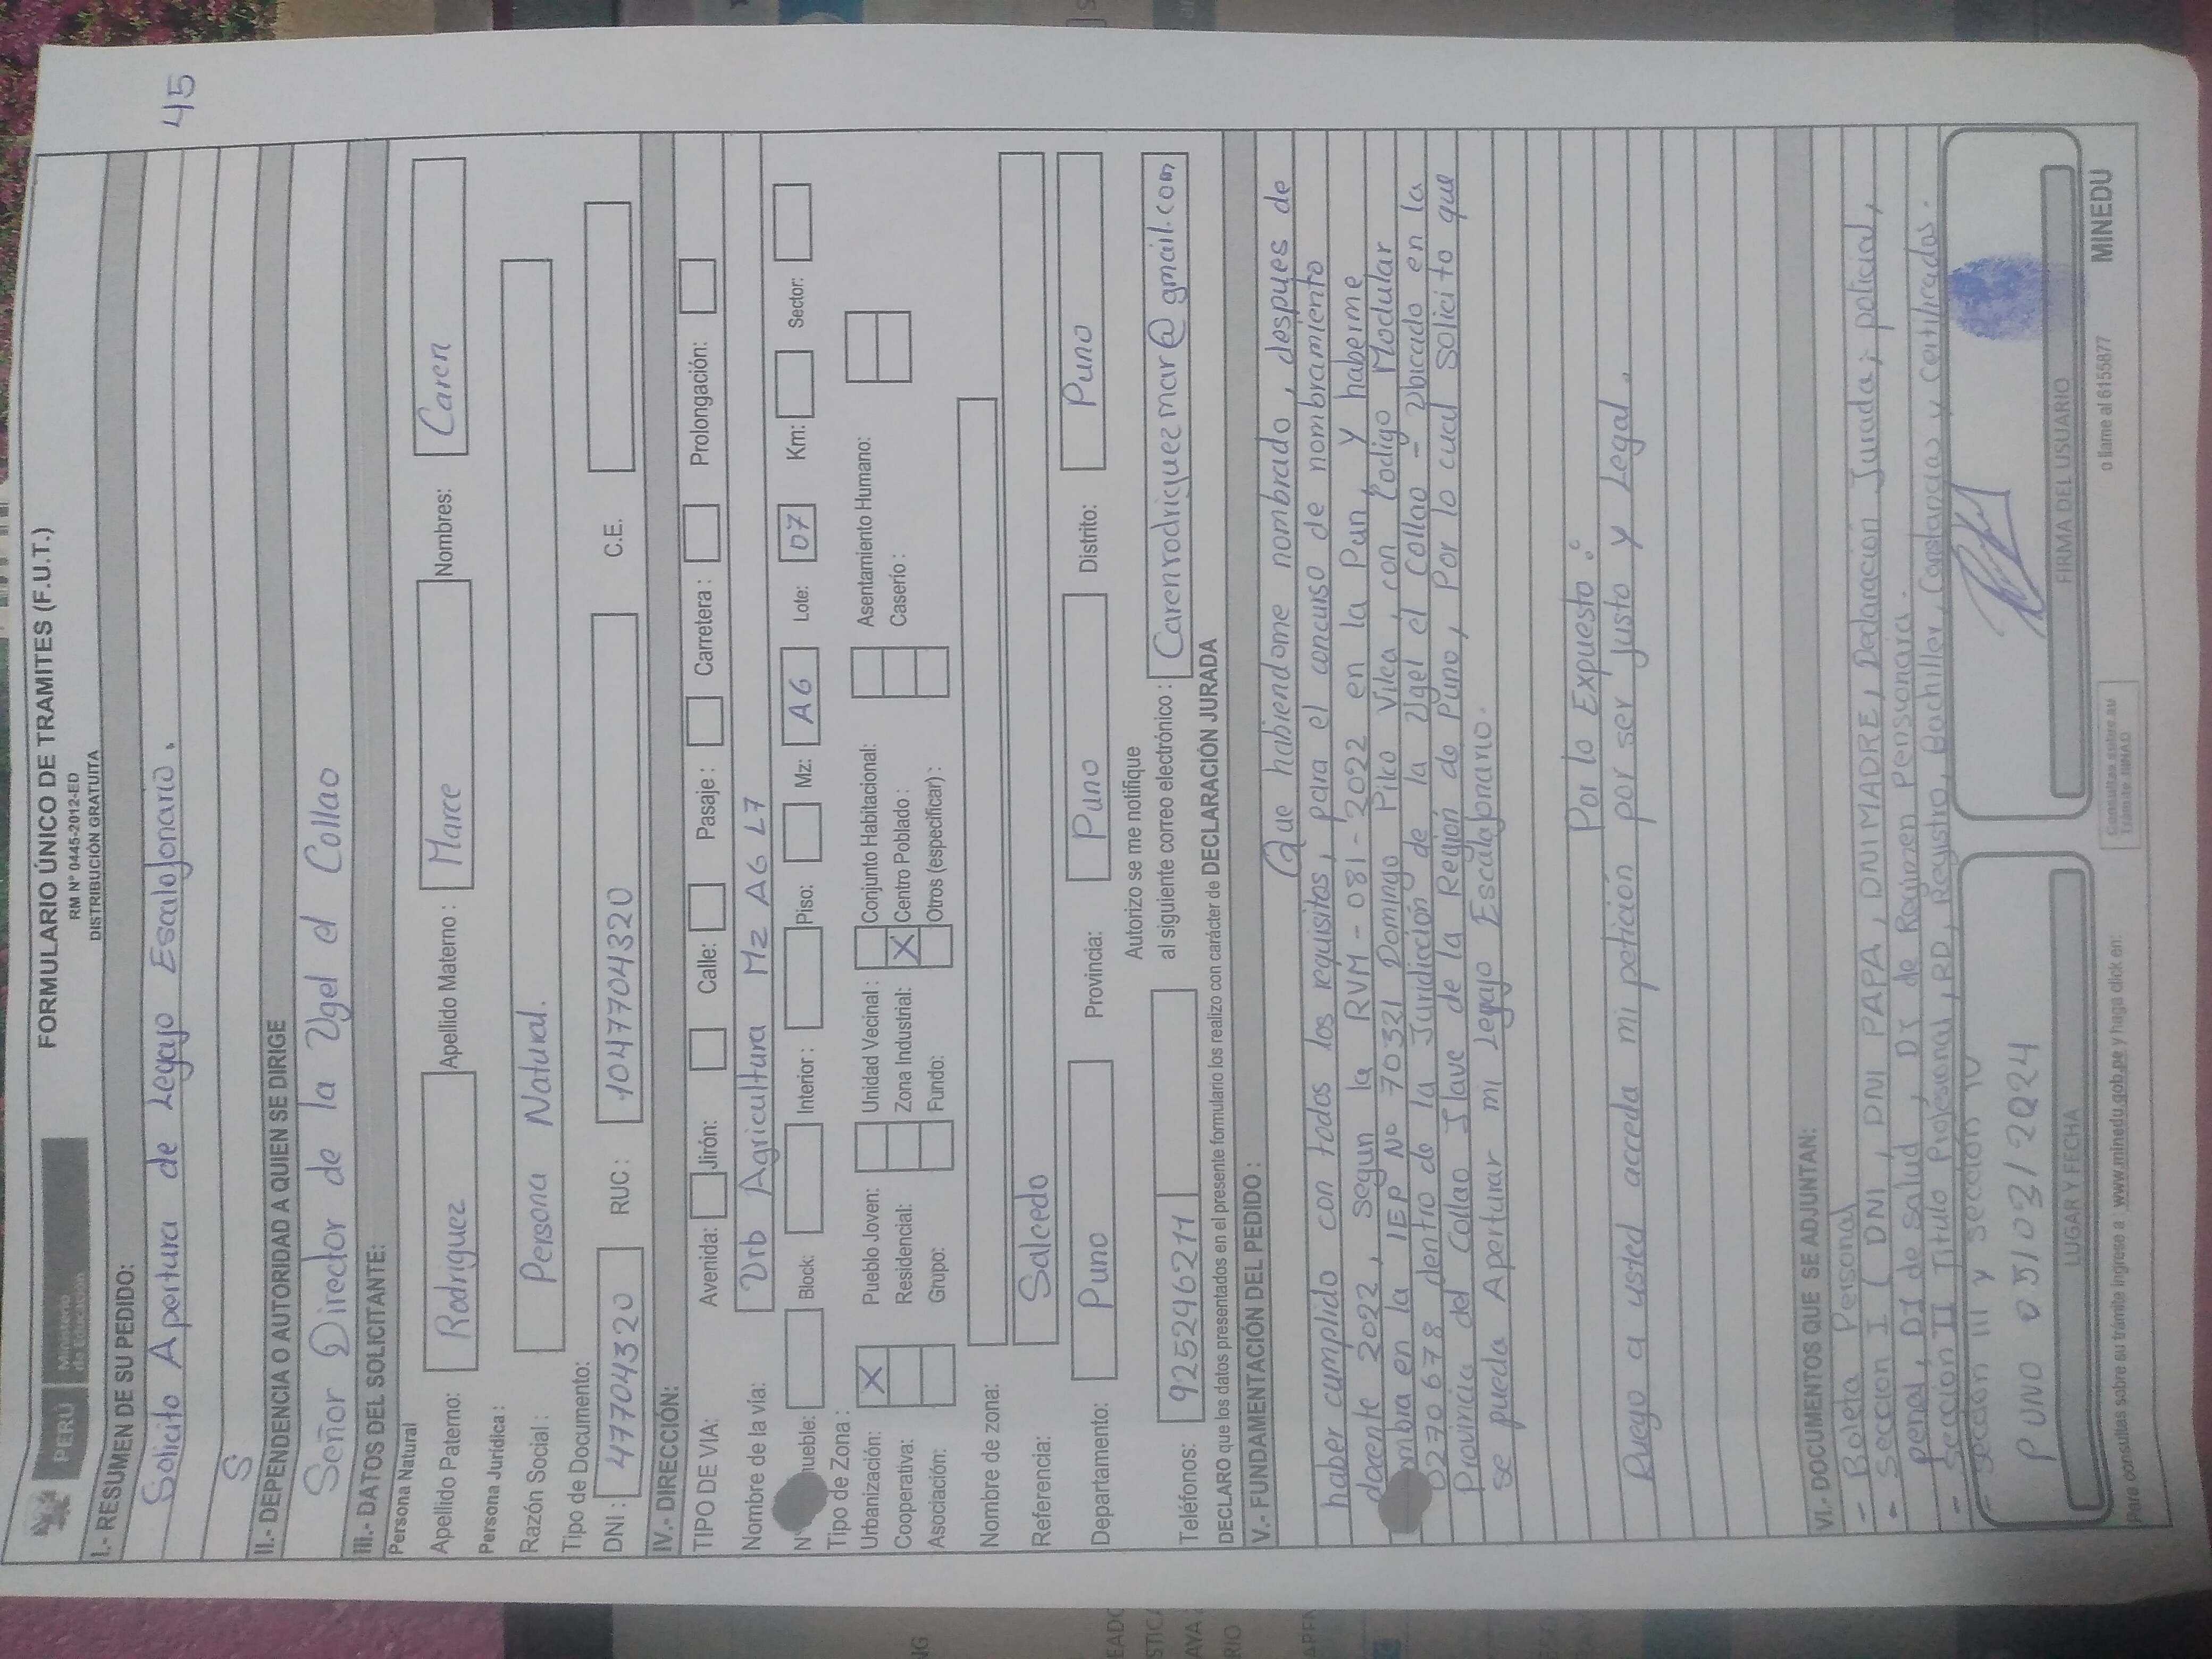 PERÚ Ministerio de Educación
FORMULARIO ÚNICO DE TRAMITES (F.U.T.)
RM Nº 0445-2012-ED
DISTRIBUCIÓN GRATUITA
45
I.- RESUMEN DE SU PEDIDO:
Solicito Apertura de Legajo Escalafonario.
S
II.- DEPENDENCIA O AUTORIDAD A QUIEN SE DIRIGE
Señor Director de la Ugel el Collao
III.- DATOS DEL SOLICITANTE:
Persona Natural
Apellido Paterno: Rodriguez Apellido Materno : Marce Nombres: Caren
Persona Jurídica :
Razón Social : Persona Natural.
Tipo de Documento:
DNI : 47704320 RUC : 10477043320 C.E.
IV.- DIRECCIÓN:
TIPO DE VIA: Avenida: Jirón: Calle: Pasaje : Carretera : Prolongación:
Nombre de la vía: Urb Agricultura Mz A6 L7
Nº mueble: Block: Interior : Piso: Mz: A6 Lote: 07 Km: Sector:
Tipo de Zona :
Urbanización: X Pueblo Joven: Unidad Vecinal : Conjunto Habitacional: Asentamiento Humano:
Cooperativa: Residencial: Zona Industrial: X Centro Poblado : Caserío :
Asociación: Grupo: Fundo: Otros (especificar) :
Nombre de zona:
Referencia: Salcedo
Departamento: Puno Provincia: Puno Distrito: Puno
Autorizo se me notifique
Teléfonos: 925296211 al siguiente correo electrónico : Carenrodriguezmar@gmail.com
DECLARO que los datos presentados en el presente formulario los realizo con carácter de DECLARACIÓN JURADA
V.- FUNDAMENTACIÓN DEL PEDIDO :
Que habiendome nombrado, despues de
haber cumplido con todos los requisitos, para el concurso de nombramiento
docente 2022, segun la RVM - 081 - 2022 en la Pun, y haberme
ombra en la IEP Nº 70321 Domingo Pilco Vilca, con Codigo Modular
0270678 dentro de la Juridicción de la Ugel el Collao - Ubicado en la
Provincia del Collao Ilave de la Región de Puno, Por lo cual solicito que
se pueda Aperturar mi Legajo Escalafonario.
Por lo Expuesto:
Ruego a usted acceda mi petición por ser justo y Legal.
VI.- DOCUMENTOS QUE SE ADJUNTAN:
- Boleta Personal
- Seccion I ( DNI, DNI PAPA, DNI MADRE, Declaración Jurada; policial,
penal, DJ de salud, DJ de Regimen Pensionaria.
- Sección II Titulo Profesional, RD, Registro, Bachiller, Constancia y certificados.
- Sección III y sección IV
PUNO 05/03/2024
LUGAR Y FECHA
FIRMA DEL USUARIO
Para consultas sobre su trámite ingrese a www.minedu.gob.pe y haga click en: Consultas sobre su Trámite SINAD o llame al 6155877 MINEDU